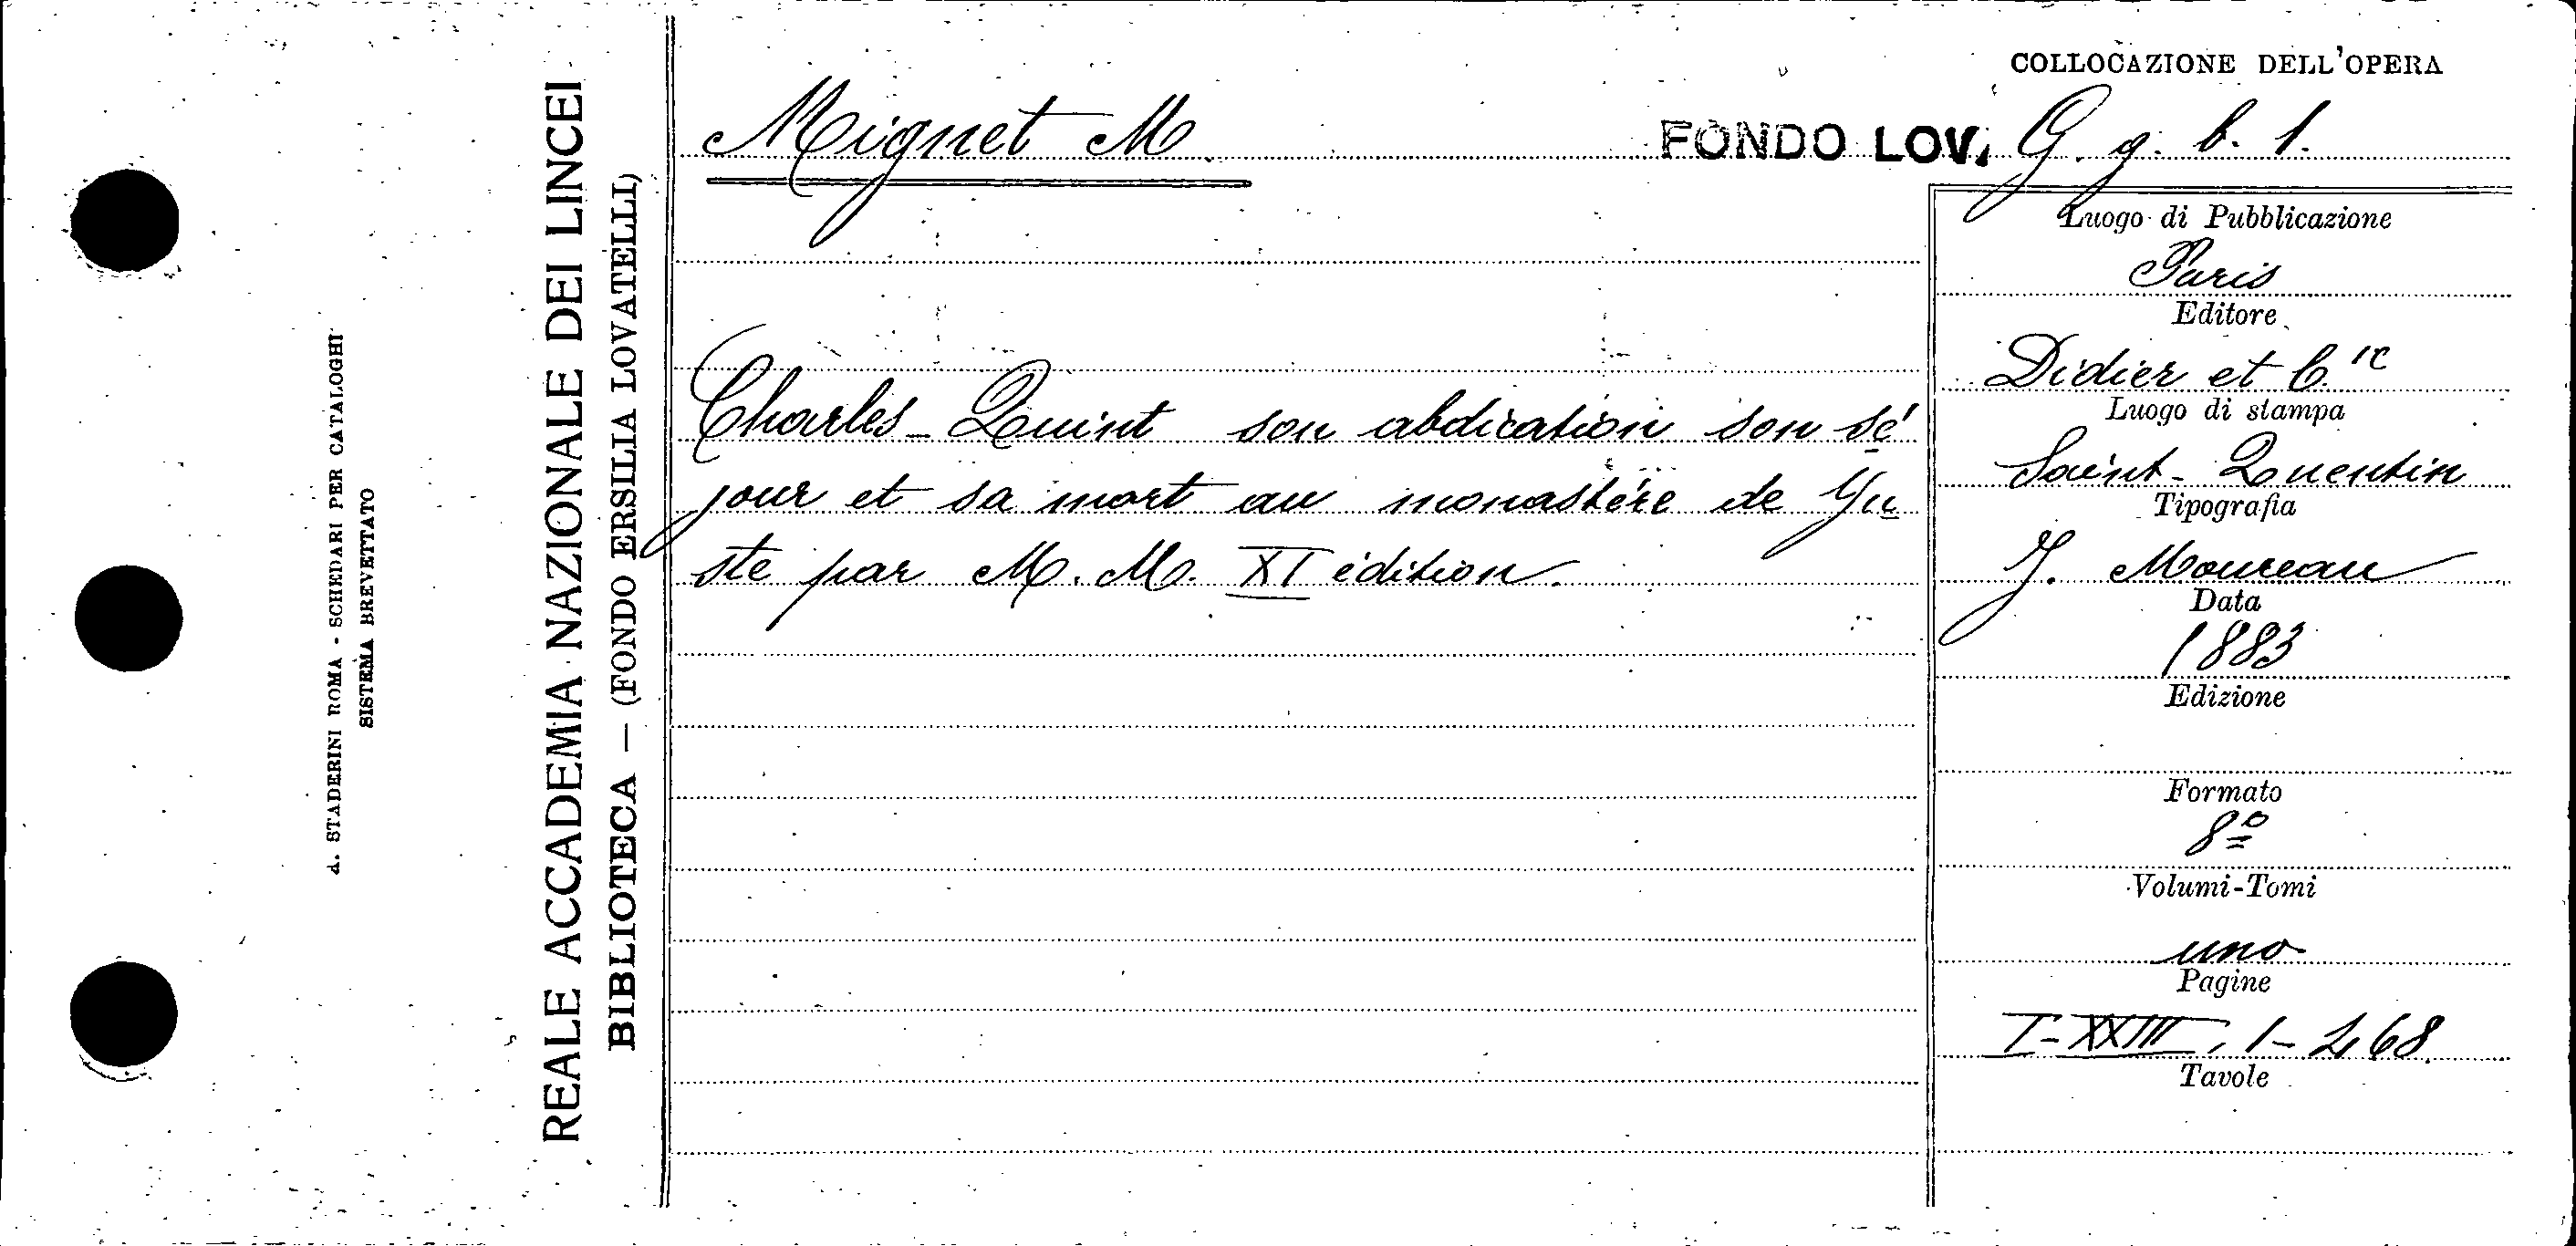 COLLOCAZIONE DELL'OPERA
Mignet M.
FONDO LOV. G. g. b. 1.
Charles-Quint son abdication son sé
jour et sa mort au monastère de Yu
ste par M. M. XI édition.
Luogo di Pubblicazione
Paris
Editore
Didier et C.ie
Luogo di stampa
Saint-Quentin
Tipografia
J. Moureau
Data
1883
Edizione
Formato
8º
Volumi-Tomi
uno
Pagine
I-XXIII, 1-468
Tavole
REALE ACCADEMIA NAZIONALE DEI LINCEI
BIBLIOTECA — (FONDO ERSILIA LOVATELLI)
A. STADERINI ROMA - SCHEDARI PER CATALOGHI
SISTEMA BREVETTATO